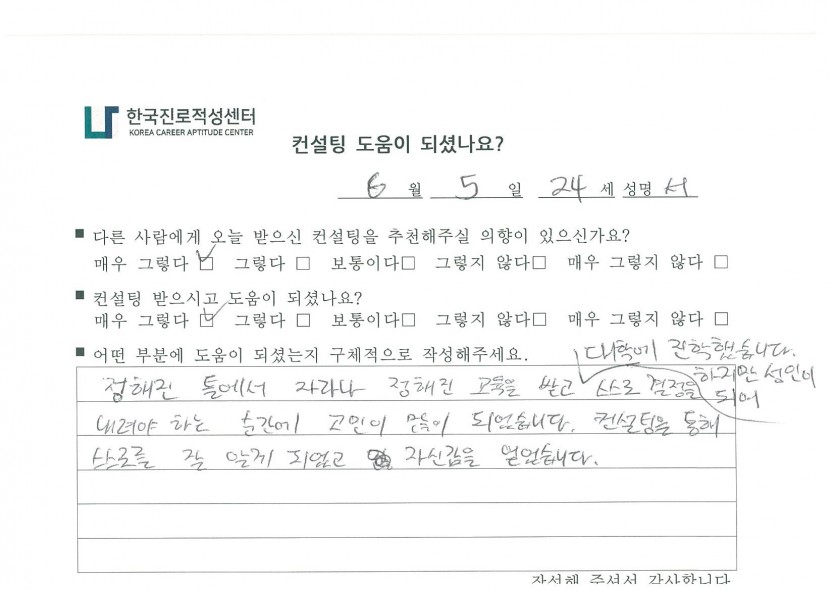 한국진로적성센터
KOREA CAREER APTITUDE CENTER
컨설팅 도움이 되셨나요?
6 월 5 일 24 세 성명 서
■ 다른 사람에게 오늘 받으신 컨설팅을 추천해주실 의향이 있으신가요?
매우 그렇다 ☑ 그렇다 □ 보통이다□ 그렇지 않다□ 매우 그렇지 않다 □
■ 컨설팅 받으시고 도움이 되셨나요?
매우 그렇다 ☑ 그렇다 □ 보통이다□ 그렇지 않다□ 매우 그렇지 않다 □
■ 어떤 부분에 도움이 되셨는지 구체적으로 작성해주세요.
대학에 진학했습니다.
하지만 성인이
되어
정해진 틀에서 자라나 정해진 교육을 받고 스스로 결정을
내려야 하는 순간에 고민이 많이 되었습니다. 컨설팅을 통해
스스로를 잘 알게 되었고 자신감을 얻었습니다.
작성해 주셔서 감사합니다